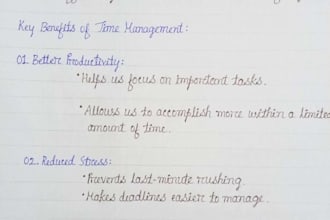 Key Benefits of Time Management:
01. Better Productivity:
•Helps us focus on important tasks.
•Allows us to accomplish more within a limited
amount of time.
02. Reduced Stress:
•Prevents last-minute rushing.
•Makes deadlines easier to manage.